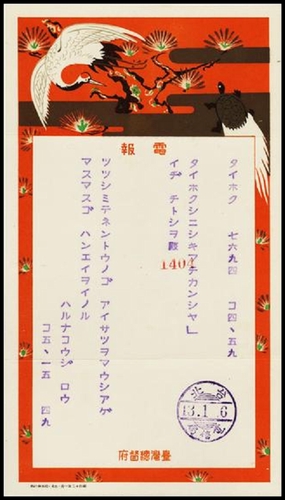 報電
タイホク 七六九四 コ四、五九
タイホクシニシキマチカンシヤ」
イヂ チトシヲ殿
1404
ツツシミテネントウノゴ アイサツヲマウシアゲ
マスマスゴ ハンエイヲイノル
ハルナコウジ ロウ
コ五、一五 四九
13.1.6
府督總灣臺